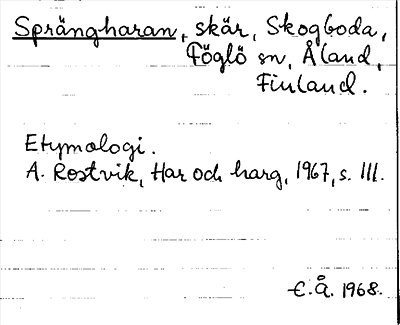 Sprängharan, skär, Skogboda,
Föglö sn, Åland,
Finland.
Etymologi.
A. Rostvik, Har och harg, 1967, s. 111.
E.Å. 1968.